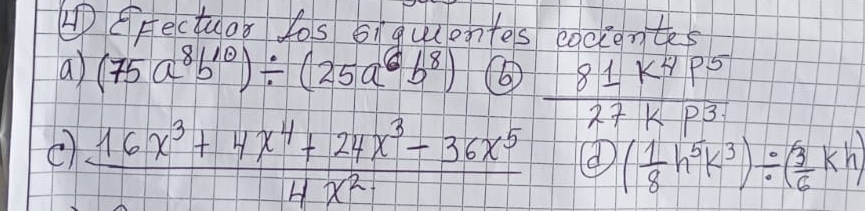 ④ Efectuar los siguientes cocientes
a) (75 a⁸b¹⁰) ÷ (25a⁶ b⁸) ⓑ 81 K⁴ P⁵ / 27 K P3.
c) 16x³ + 4x⁴ + 24x³ - 36x⁵ / 4x². ⓓ (1/8 h⁵K³) ÷ (3/6 Kh)